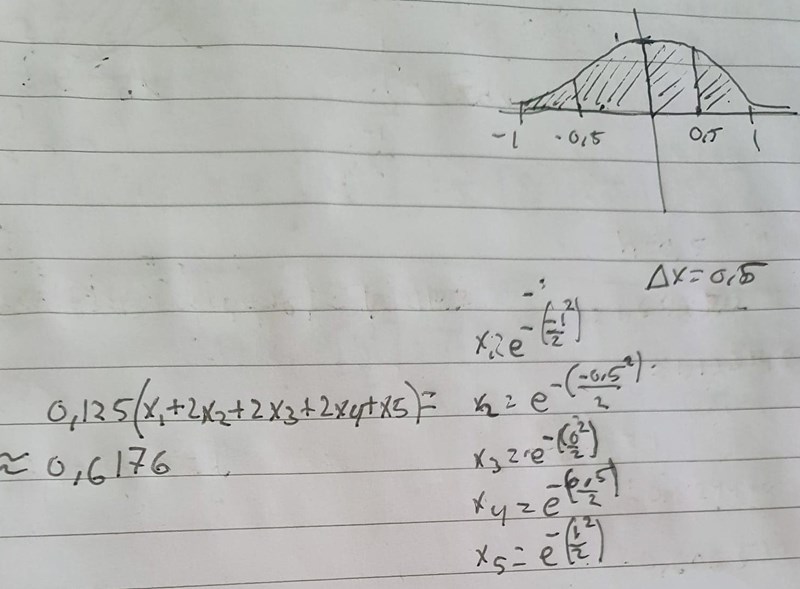 1
-1 -0,5 0,5 1
Δx = 0,5
x₁ = e^-(-1²/2)
0,125(x₁+2x₂+2x₃+2x4+x5)= x₂ = e^-(-0,5²/2)
≈ 0,6176 x₃ = e^-(0²/2)
x4 = e^-(0,5²/2)
x5 = e^-(1²/2)